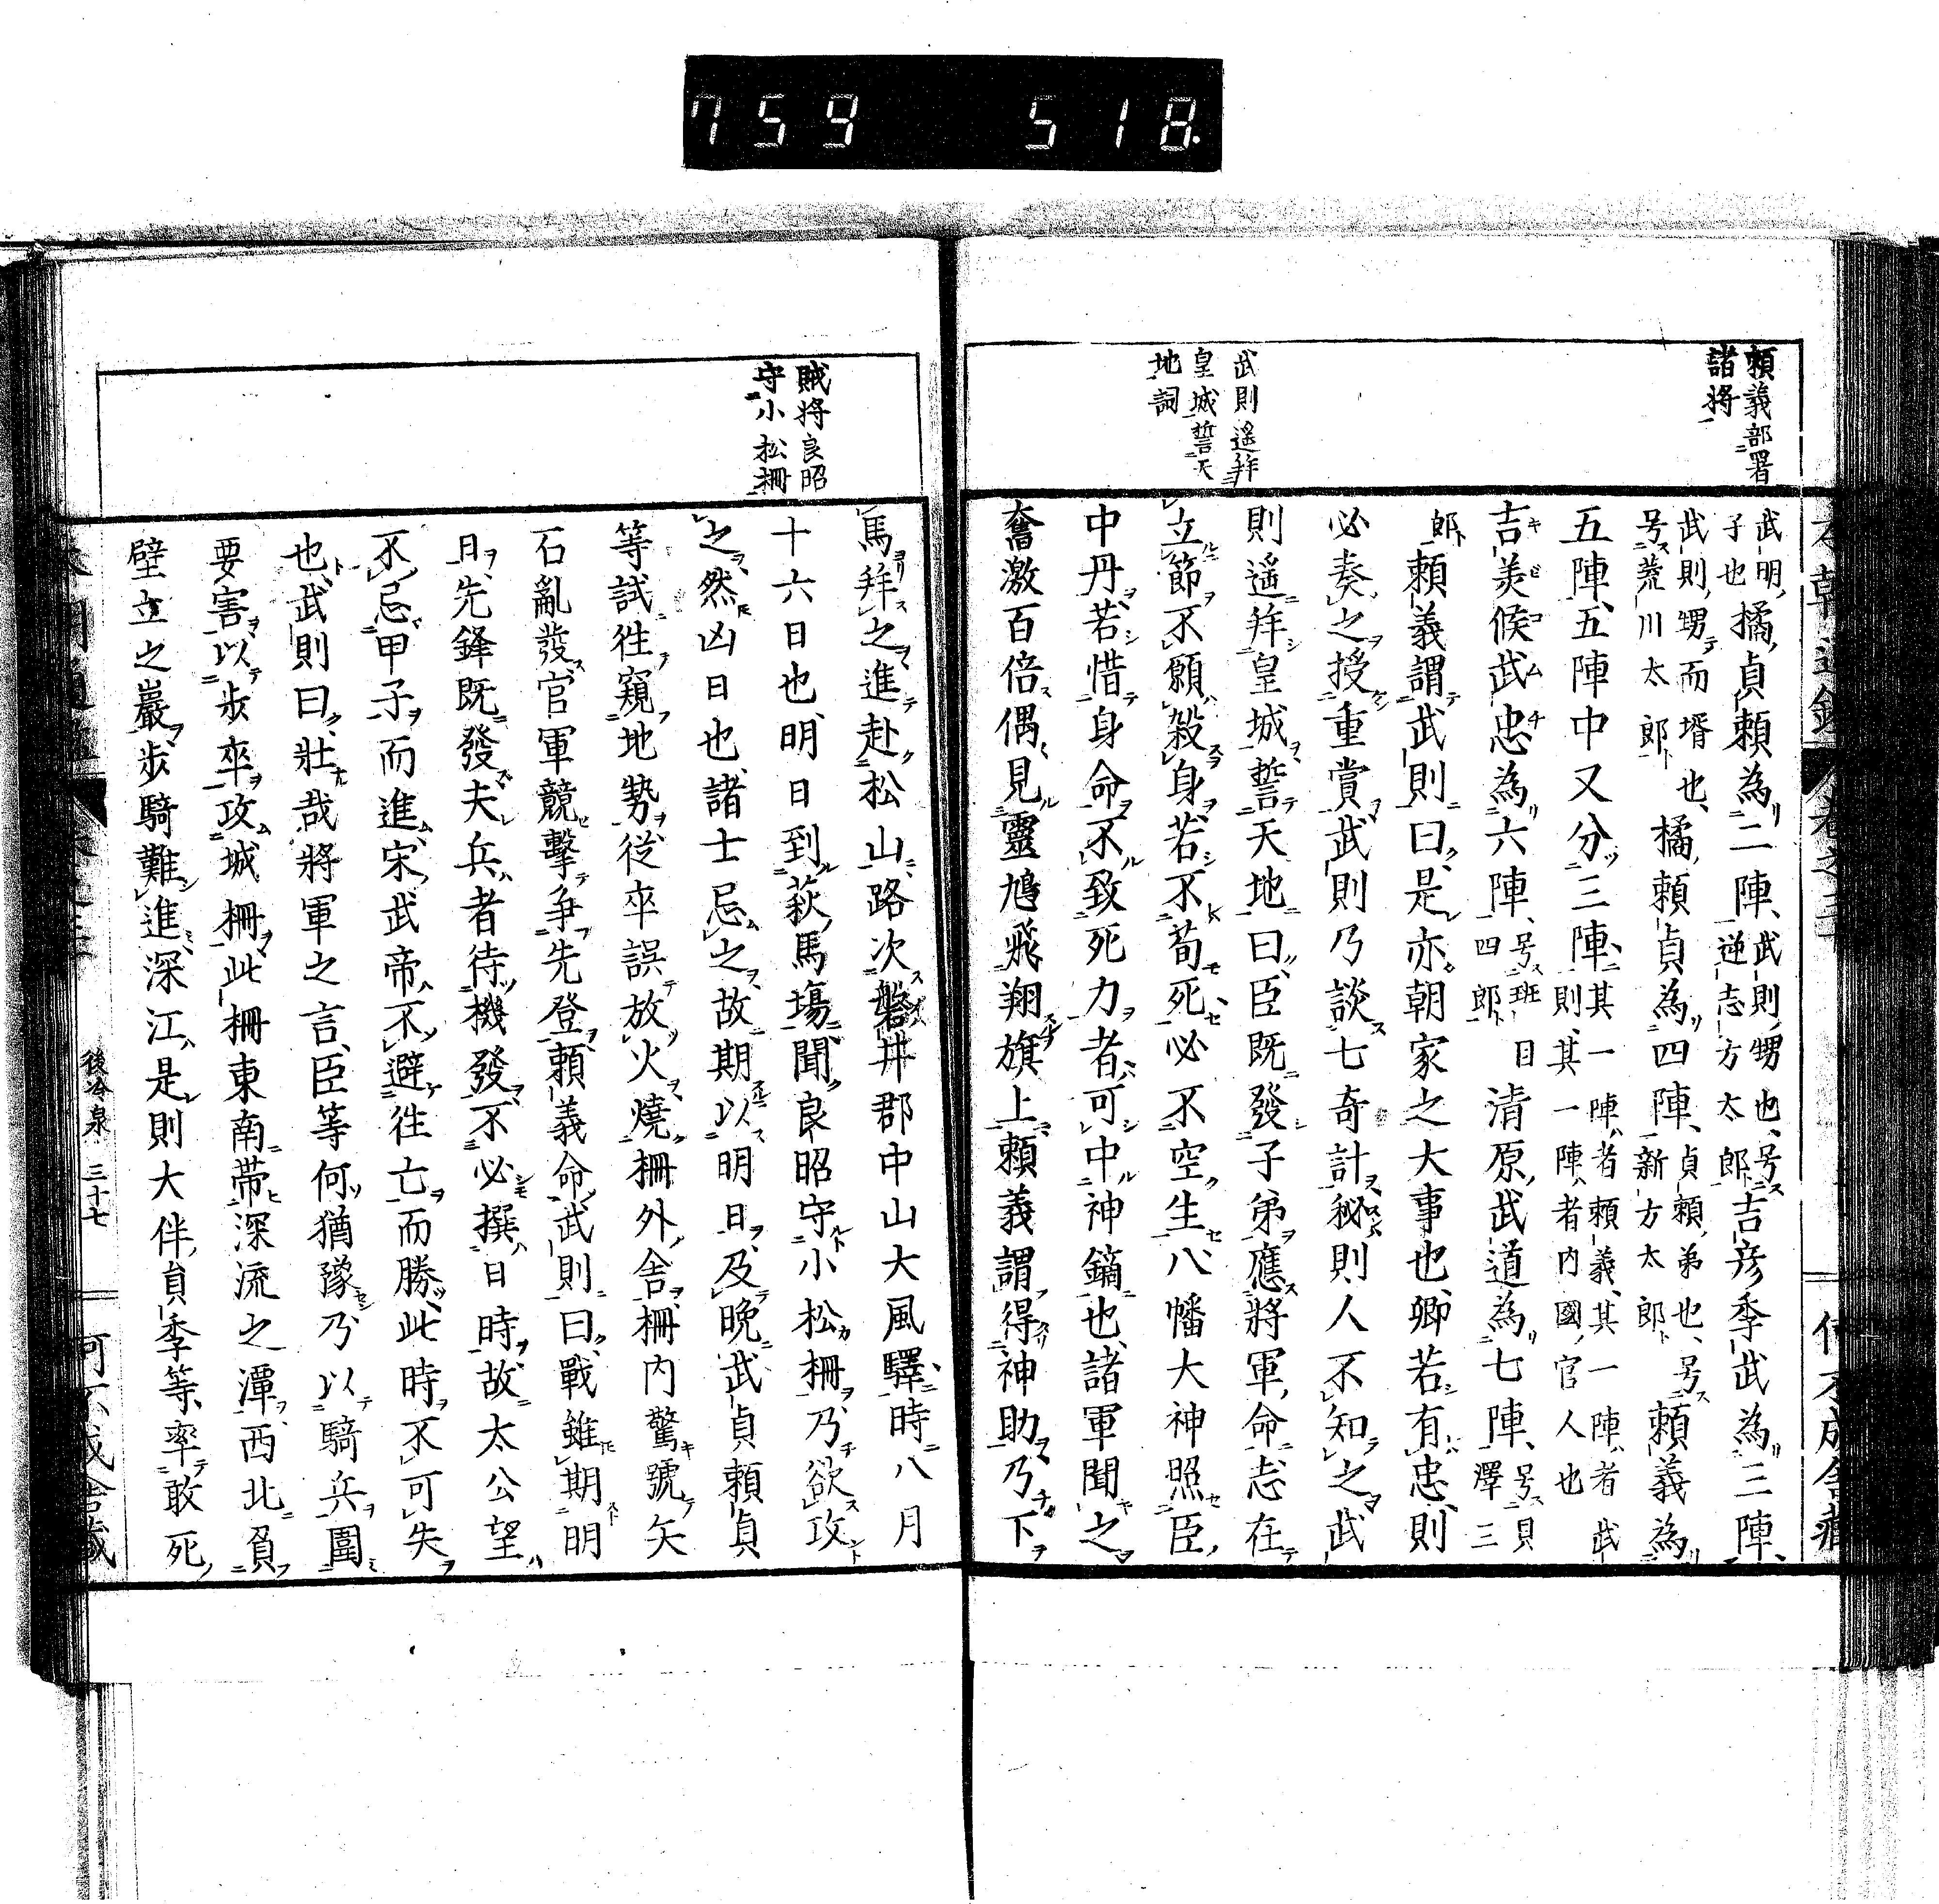 759 518
賴義部署
諸將
武則遙拜
皇城誓天
地詞
武明
子也橘貞賴為二陣武則甥也号
逆志方太郎吉彦季武為三陣
武則甥而壻也
号荒川太郎橘賴貞為四陣貞賴弟也号
新方太郎賴義為
五陣五陣中又分三陣其一陣者賴義其一陣者武
則其一陣者內國官人也
吉美侯武忠為六陣号班目
四郎清原武道為七陣号貝
澤三
郎賴義謂武則曰是亦朝家之大事也卿若有忠則
必奏之授重賞武則乃談七奇計秘則人不知之武
則遙拜皇城誓天地曰臣既發子弟應將軍命志在
立節不顧殺身若不苟死必不空生八幡大神照臣
中丹若惜身命不致死力者可中神鏑也諸軍聞之
奮激百倍偶見靈鳩飛翔旗上賴義謂得神助乃下
賊將良昭
守小松柵
馬拜之進赴松山路次磐井郡中山大風驛時八月
十六日也明日到萩馬場聞良昭守小松柵乃欲攻
之然凶日也諸士忌之故期以明日及晚武貞賴貞
等試往窺地勢從卒誤放火燒柵外舍柵內驚號矢
石亂發官軍競擊爭先登賴義命武則曰戰雖期明
日先鋒既發夫兵者待機發不必撰日時故太公望
不忌甲子而進宋武帝不避往亡而勝此時不可失
也武則曰壯哉將軍之言臣等何猶豫乃以騎兵圍
要害以步卒攻城柵此柵東南帶深流之潭西北負
壁立之巖步騎難進深江是則大伴員季等率敢死
後冷泉 三十七